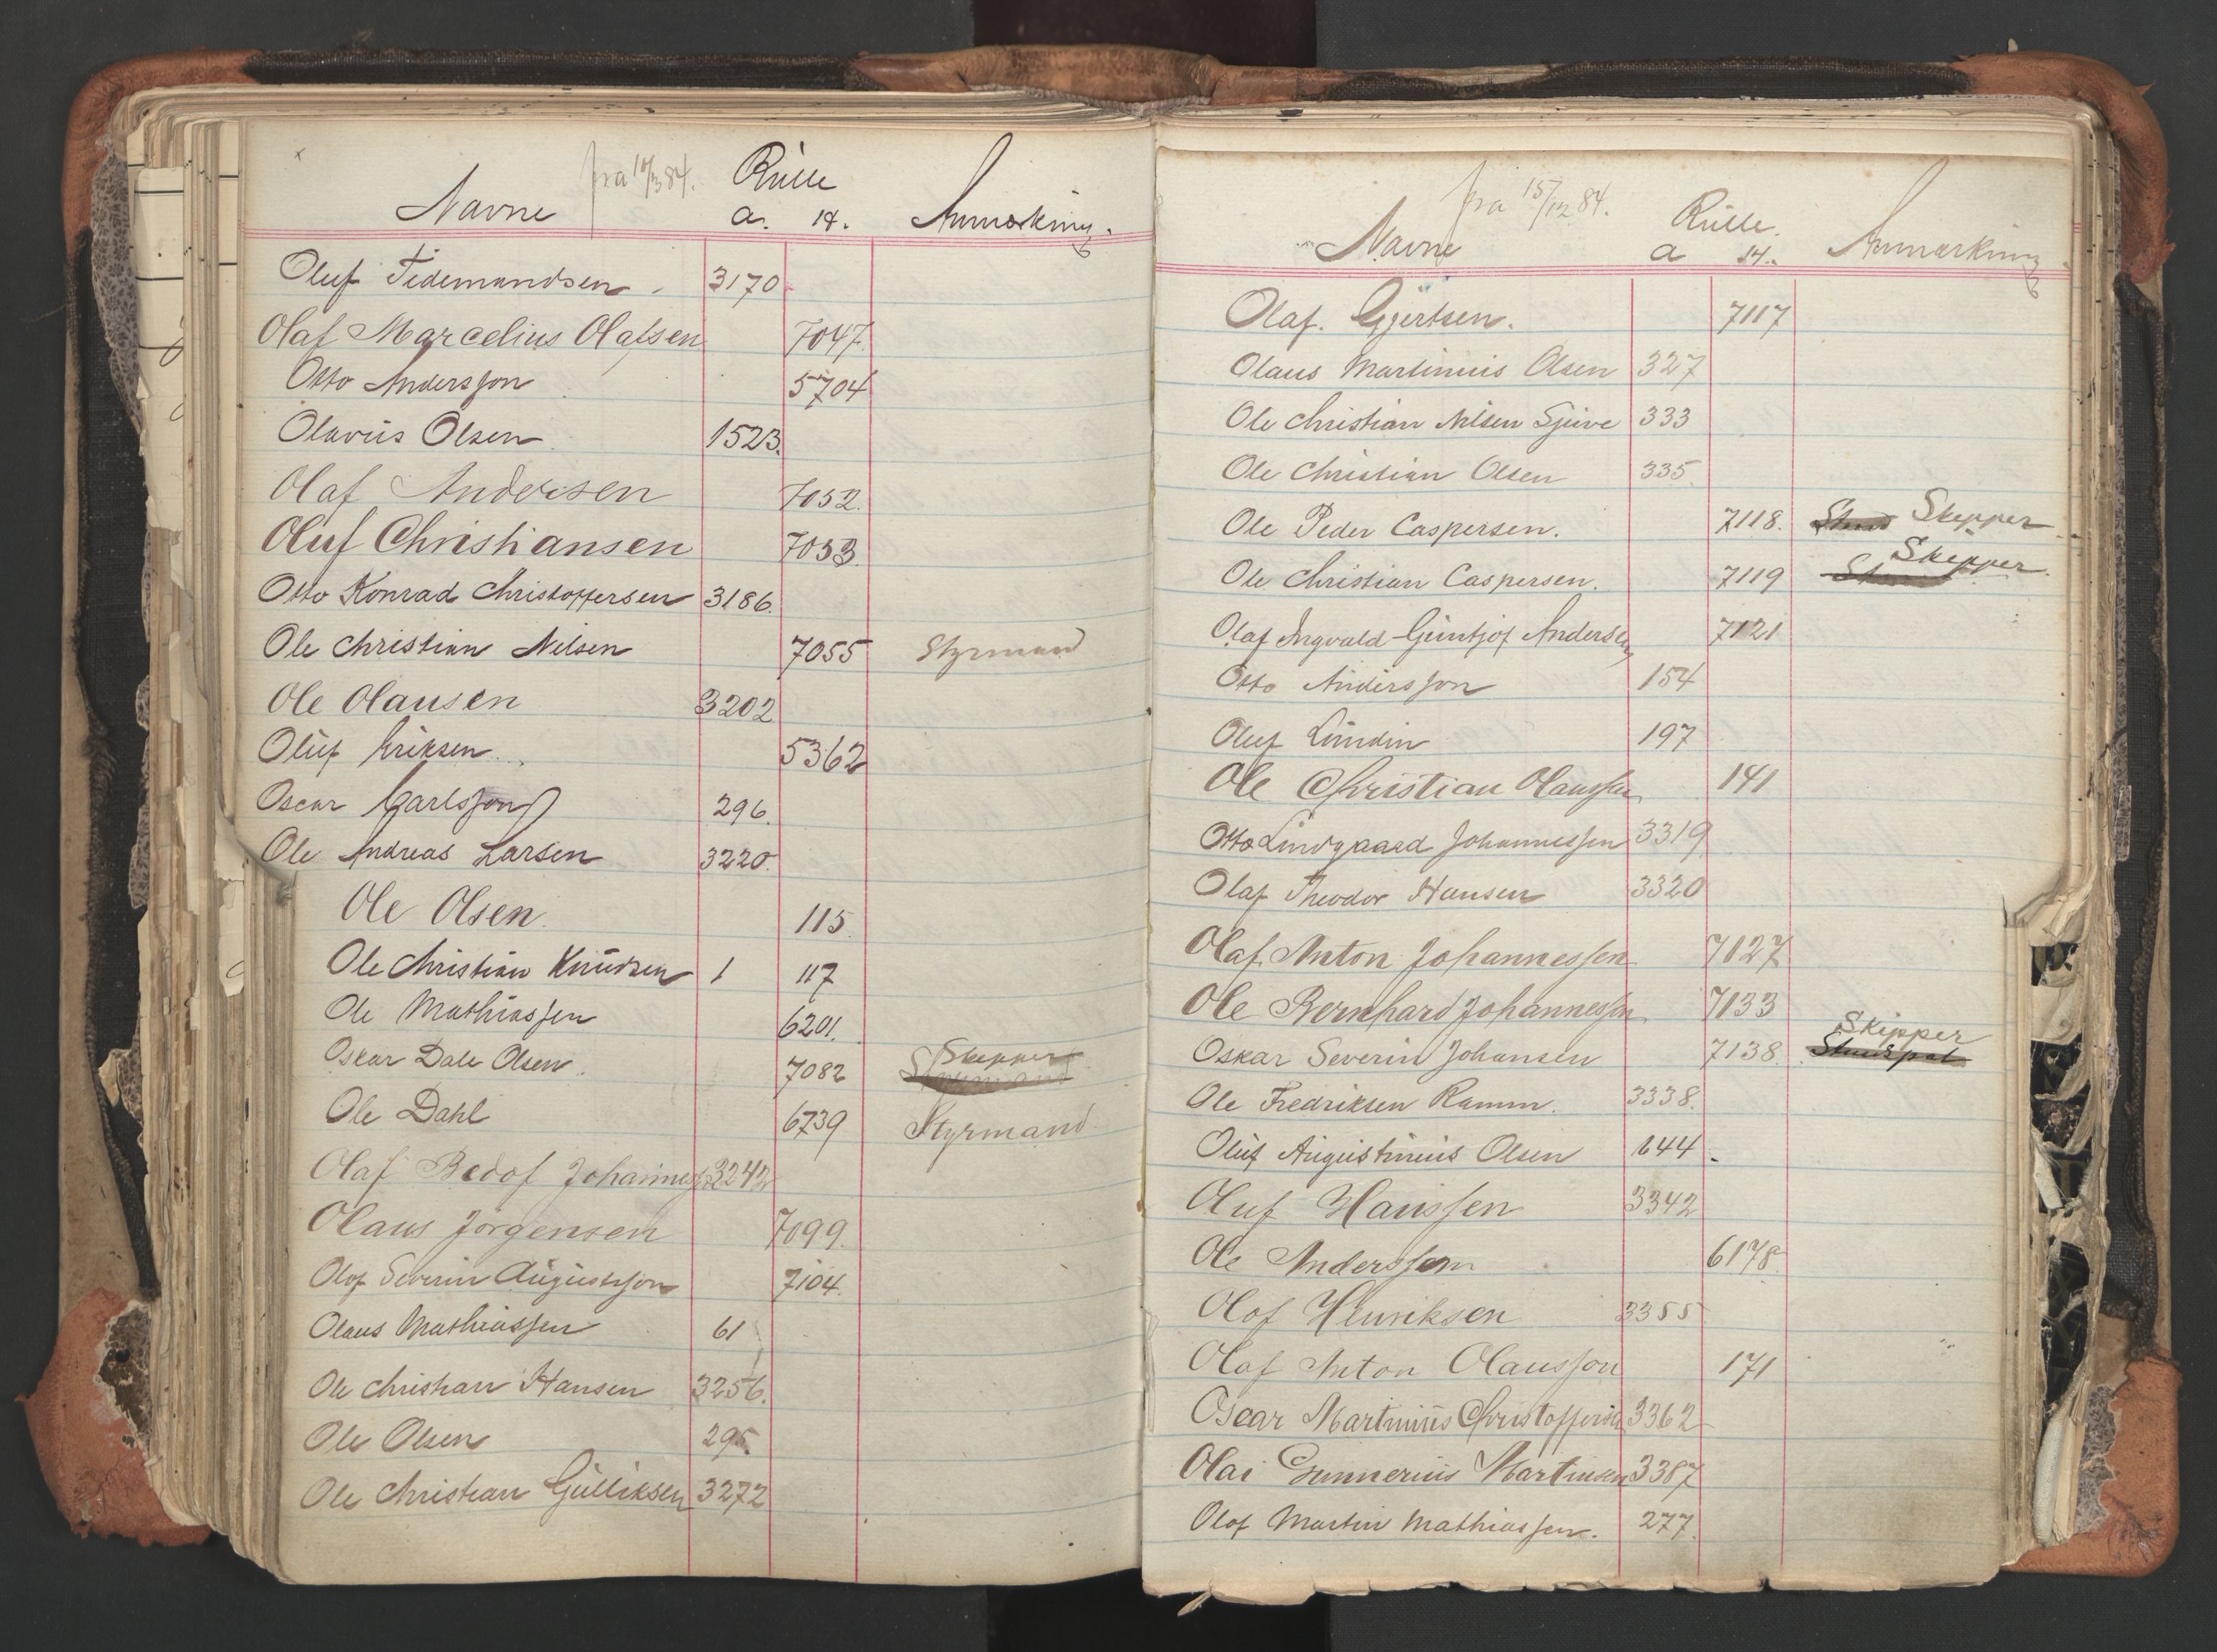 fra 10/3 84. Rulle
Navne a. 14. Anmærkning.
Oluf Tidemandsen. 3170
Olaf Marcelius Olafsen 7047.
Otto Andersson 5704
Olavus Olsen 1523.
Olaf Andersen 7052.
Oluf Christiansen 7053.
Otto Konrad Christoffersen 3186.
Ole Christian Nilsen 7055 Styrmand
Ole Olausen 3202
Oluf Eriksen 5362
Oscar Carlsson 296.
Ole Andreas Larsen 3220.
Ole Olsen. 115.
Ole Christian Knudsen 1 117
Ole Mathiassen 6201.
Oskar Dale Olsen. 7082 Skipper Styrmand
Ole Dahl 6739 Styrmand
Olaf Bedof Johannes 3242
Olaus Jörgensen 7099.
Olof Severin Augustsson 7104.
Olaus Mathiassen 61
Ole Christian Hansen 3256.
Ole Olsen 295.
Ole Christian Gulliksen 3272
fra 15/12 84. Rulle.
Navne a 14. Anmærkning
Olaf. Gjertsen. 7117
Olaus Martinius Olsen 327
Ole Christian Nilsen Sjuve 333
Ole Christian Olsen 335.
Ole Peder Caspersen. 7118. Skipper
Ole Christian Caspersen. 7119 Skipper.
Olaf Ingvald Andersen 7121
Otto Andersson 154
Oluf Lundin 197
Ole Christian Olaussen 141
Otto Lindgaard Johannessen 3319
Olaf Theodor Hansen 3320
Olaf Anton Johannessen 7127
Ole Bernhard Johannessen 7133
Oskar Severin Johansen 7138. Skipper
Ole Fredriksen Ramm. 3338.
Oluf Augustinius Olsen 644
Oluf Hanssen 3342
Ole Anderssen 6178.
Olof Henriksen 3355
Olaf Anton Olausson 171
Oscar Martinius Christoffersen 3362
Olai Gunnerius Martinsen 3387
Olof Martin Mathiassen. 277.